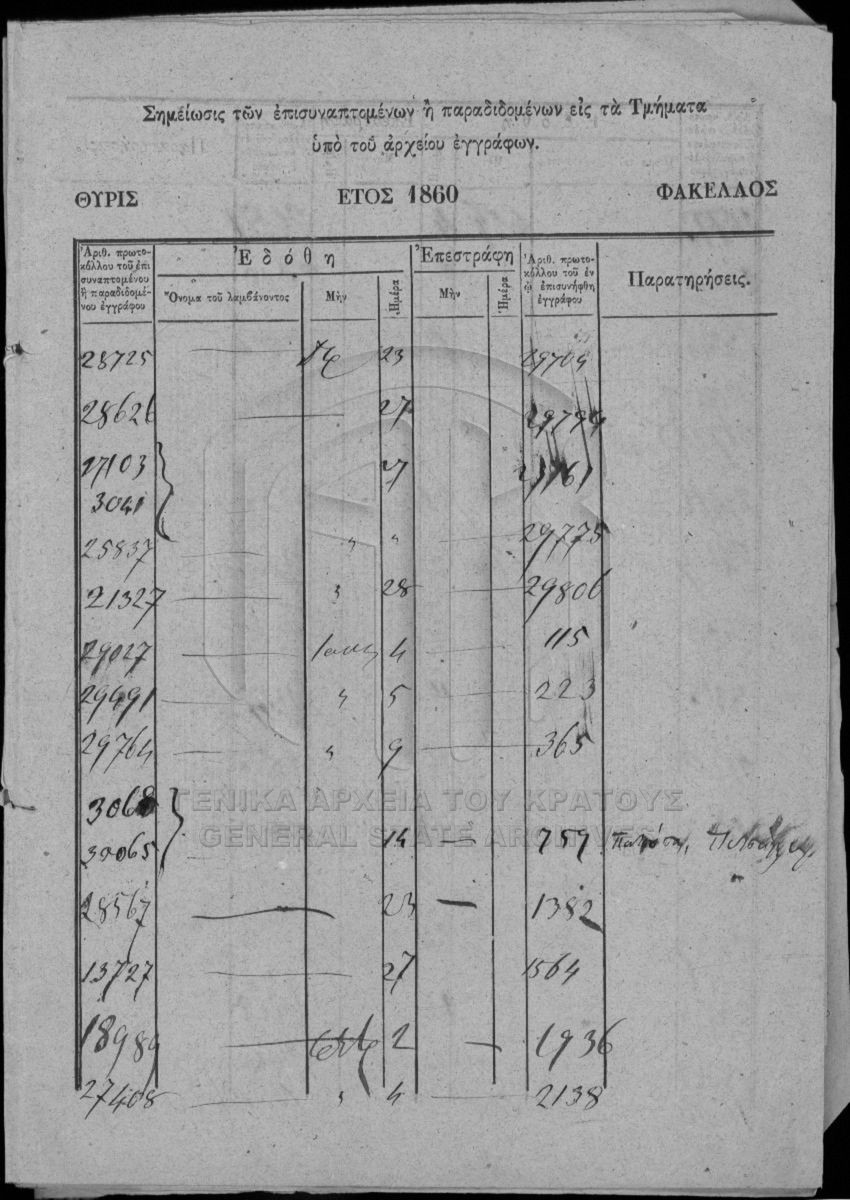 Σημείωσις τῶν ἐπισυναπτομένων ἢ παραδιδομένων εἰς τὰ Τμήματα
ὑπὸ τοῦ ἀρχείου ἐγγράφων.
ΘΥΡΙΣ ΕΤΟΣ 1860 ΦΑΚΕΛΛΟΣ
Ἀριθ. πρωτο-
κόλλου τοῦ ἐπι
συναπτομένου
ἢ παραδιδομέ-
νου ἐγγράφου
Ἐδόθη
Ὄνομα τοῦ λαμβάνοντος Μὴν Ἡμέρα
Ἐπεστράφη
Μὴν Ἡμέρα
Ἀριθ. πρωτο-
κόλλου τοῦ ἐν
ᾧ ἐπισυνήφθη
ἐγγράφου
Παρατηρήσεις.
28725 23 29704
28626 27 29794
27103 27
3041
25837 〃 〃 29775
21327 〃 28 29806
29027 4 115
29491 〃 5 223
29764 〃 9 365
3068
30065 14 759
28567 23 1382
13727 27 1564
18989 2 1936
27408 〃 4 2138
ΓΕΝΙΚΑ ΑΡΧΕΙΑ ΤΟΥ ΚΡΑΤΟΥΣ
GENERAL STATE ARCHIVES